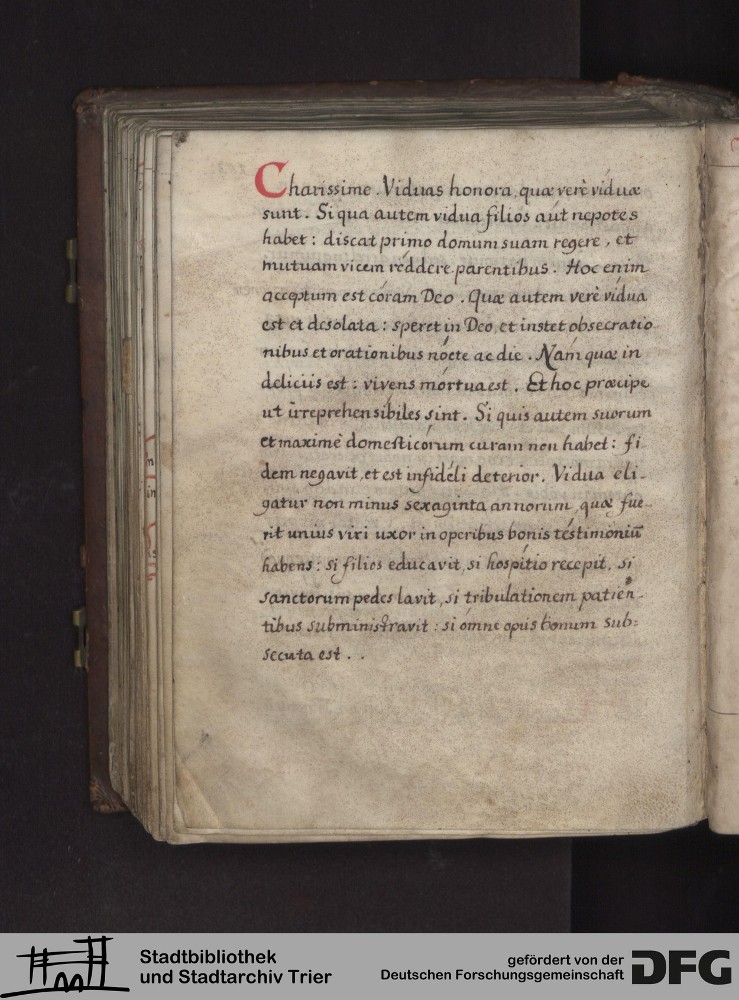 Charissime. Viduas honora, quæ verè viduæ
sunt. Si qua autem vidua filios aut nepotes
habet: discat primo domum suam regere, et
mutuam vicem reddere parentibus. Hoc enim
acceptum est coram Deo. Quæ autem verè vidua
est et desolata: speret in Deo, et instet obsecratio
nibus et orationibus nocte ac die. Nam quæ in
deliciis est: vivens mortua est. Et hoc præcipe
ut irreprehensibiles sint. Si quis autem suorum
et maximè domesticorum curam non habet: fi
dem negavit, et est infideli deterior. Vidua eli-
gatur non minus sexaginta annorum, quæ fue-
rit unius viri uxor in operibus bonis testimoniū
habens: si filios educavit, si hospitio recepit, si
sanctorum pedes lavit, si tribulationem patien-
tibus subministravit: si omne opus bonum sub:
secuta est . .
Stadtbibliothek
und Stadtarchiv Trier
gefördert von der
Deutschen Forschungsgemeinschaft
DFG